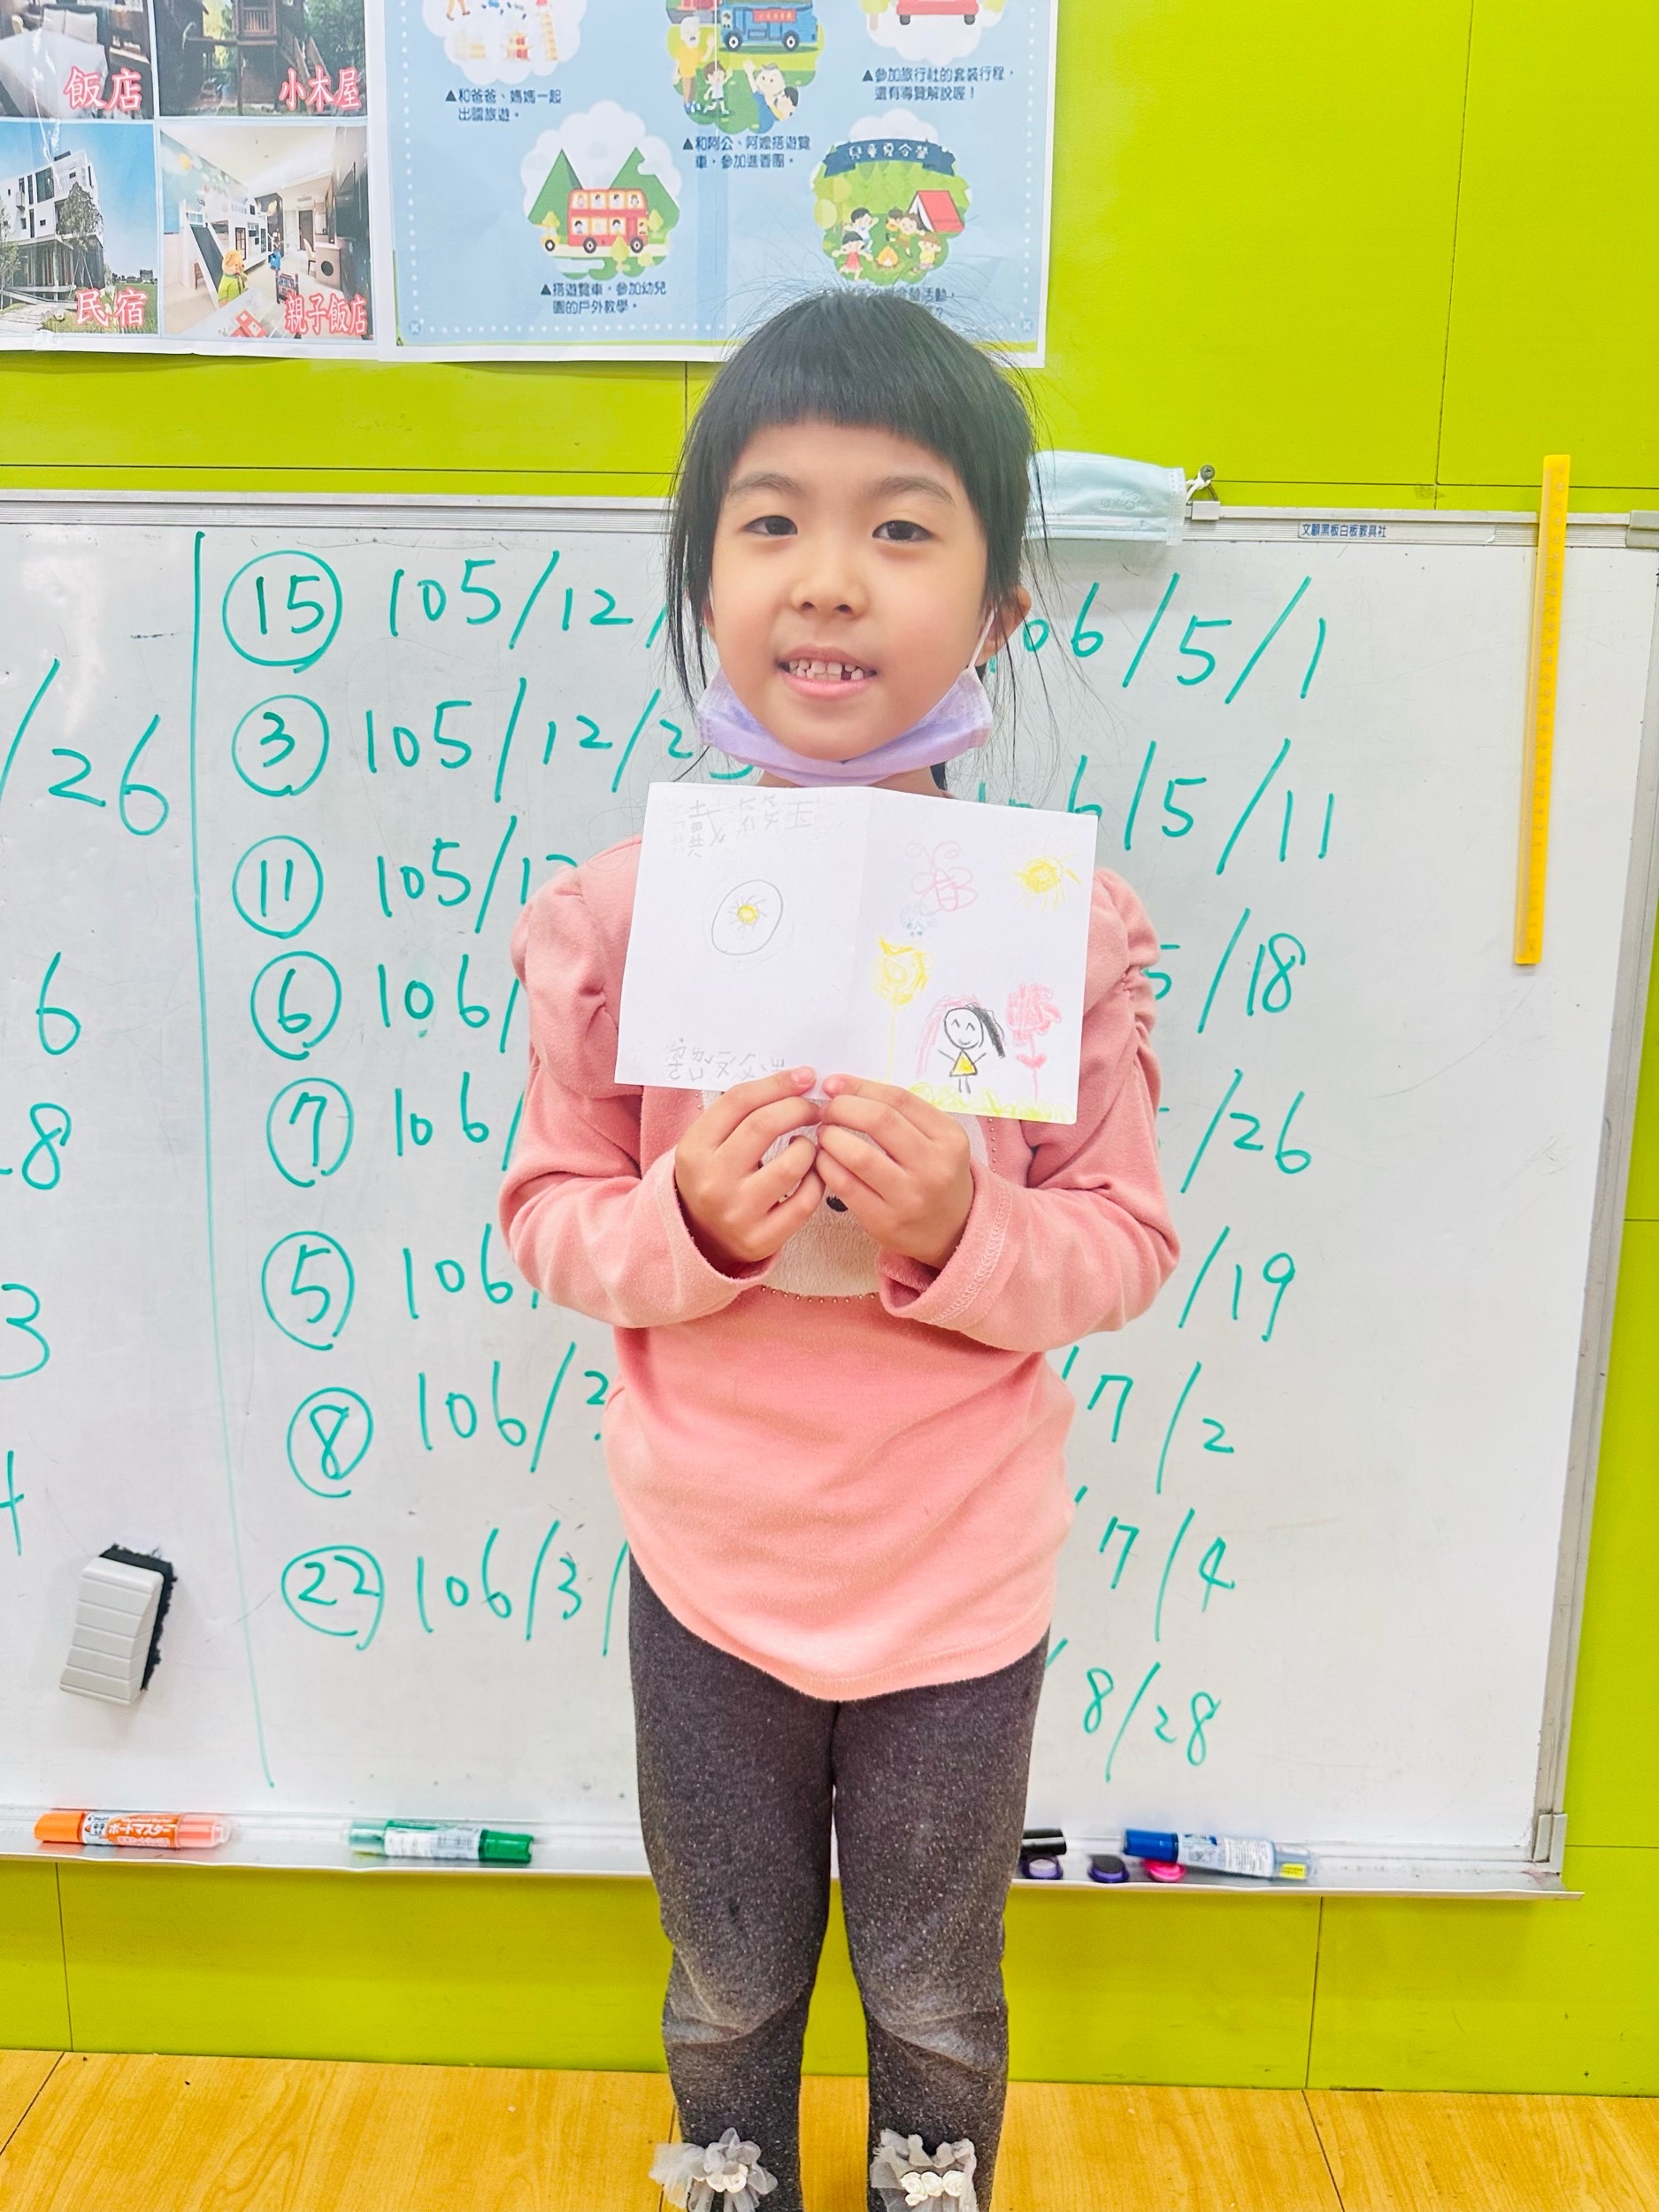 飯店
小木屋
民宿
親子飯店
▲和爸爸、媽媽一起
出國旅遊。
▲和阿公、阿嬤搭遊覽
車，參加進香團。
▲參加旅行社的套裝行程，
還有導覽解說喔！
兒童夏令營
▲搭遊覽車，參加幼兒
園的戶外教學。
文顧黑板白板教具社
/26
6
8
3
4
⑮ 105/12/
106/5/1
③ 105/12/2
106/5/11
⑪ 105/12
5/18
⑥ 106/
/26
⑦ 106/
/19
⑤ 106/
/7/2
⑧ 106/2
/7/4
㉒ 106/3/
/8/28
ボードマスター